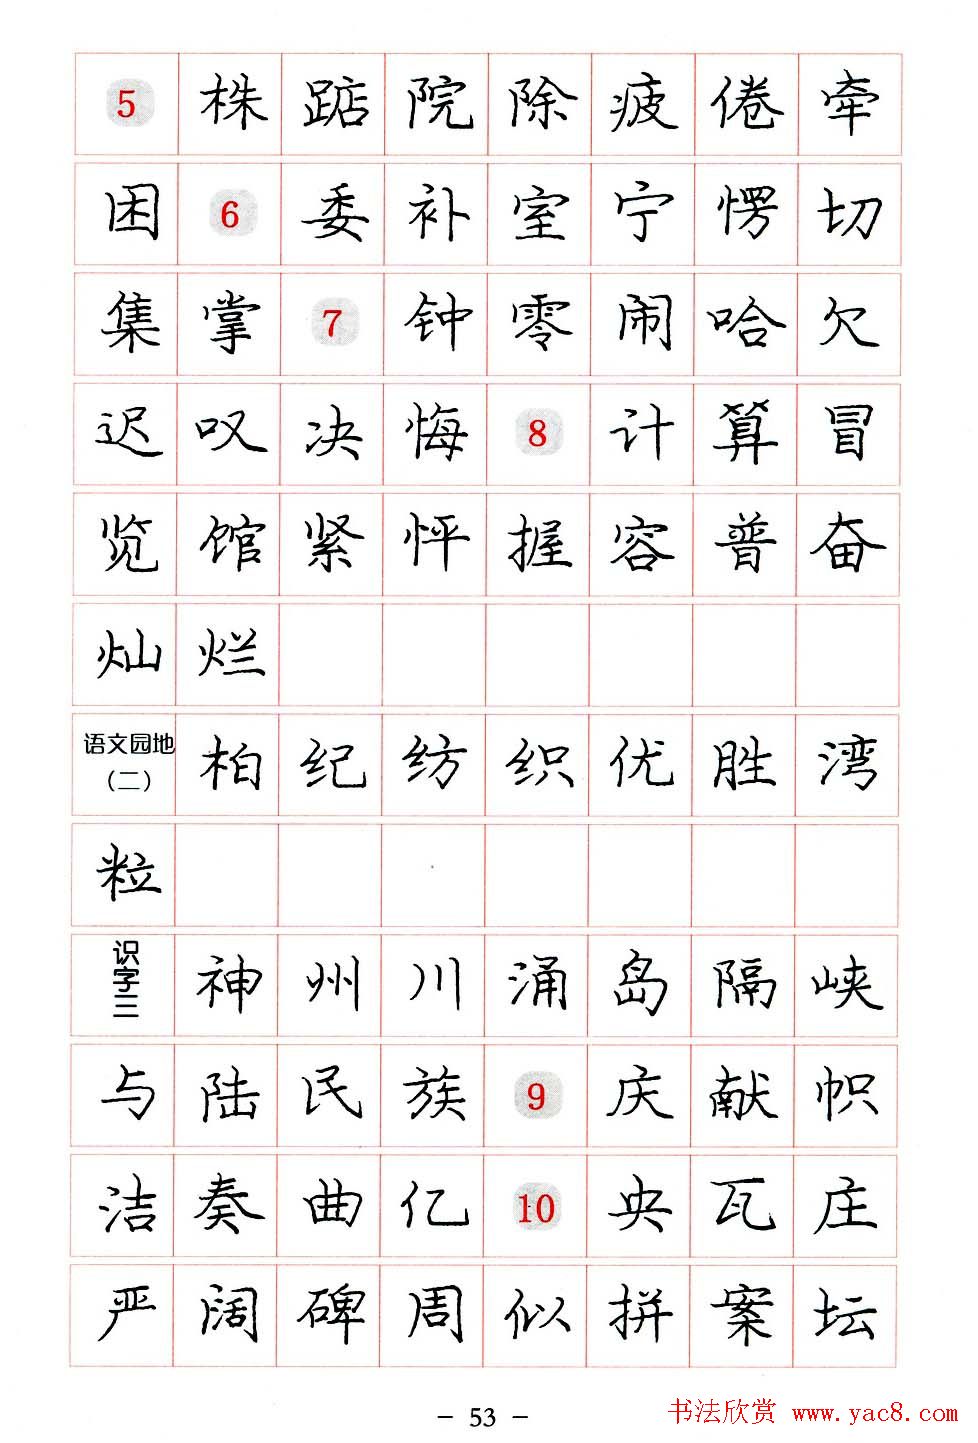 5 株 踮 院 除 疲 倦 牵
困 6 委 补 室 宁 愣 切
集 掌 7 钟 零 闹 哈 欠
迟 叹 决 悔 8 计 算 冒
览 馆 紧 怦 握 容 普 奋
灿 烂
语文园地（二） 柏 纪 纺 织 优 胜 湾
粒
识字三 神 州 川 涌 岛 隔 峡
与 陆 民 族 9 庆 献 帜
洁 奏 曲 亿 10 央 瓦 庄
严 阔 碑 周 似 拼 案 坛
- 53 -
书法欣赏 www.yac8.com